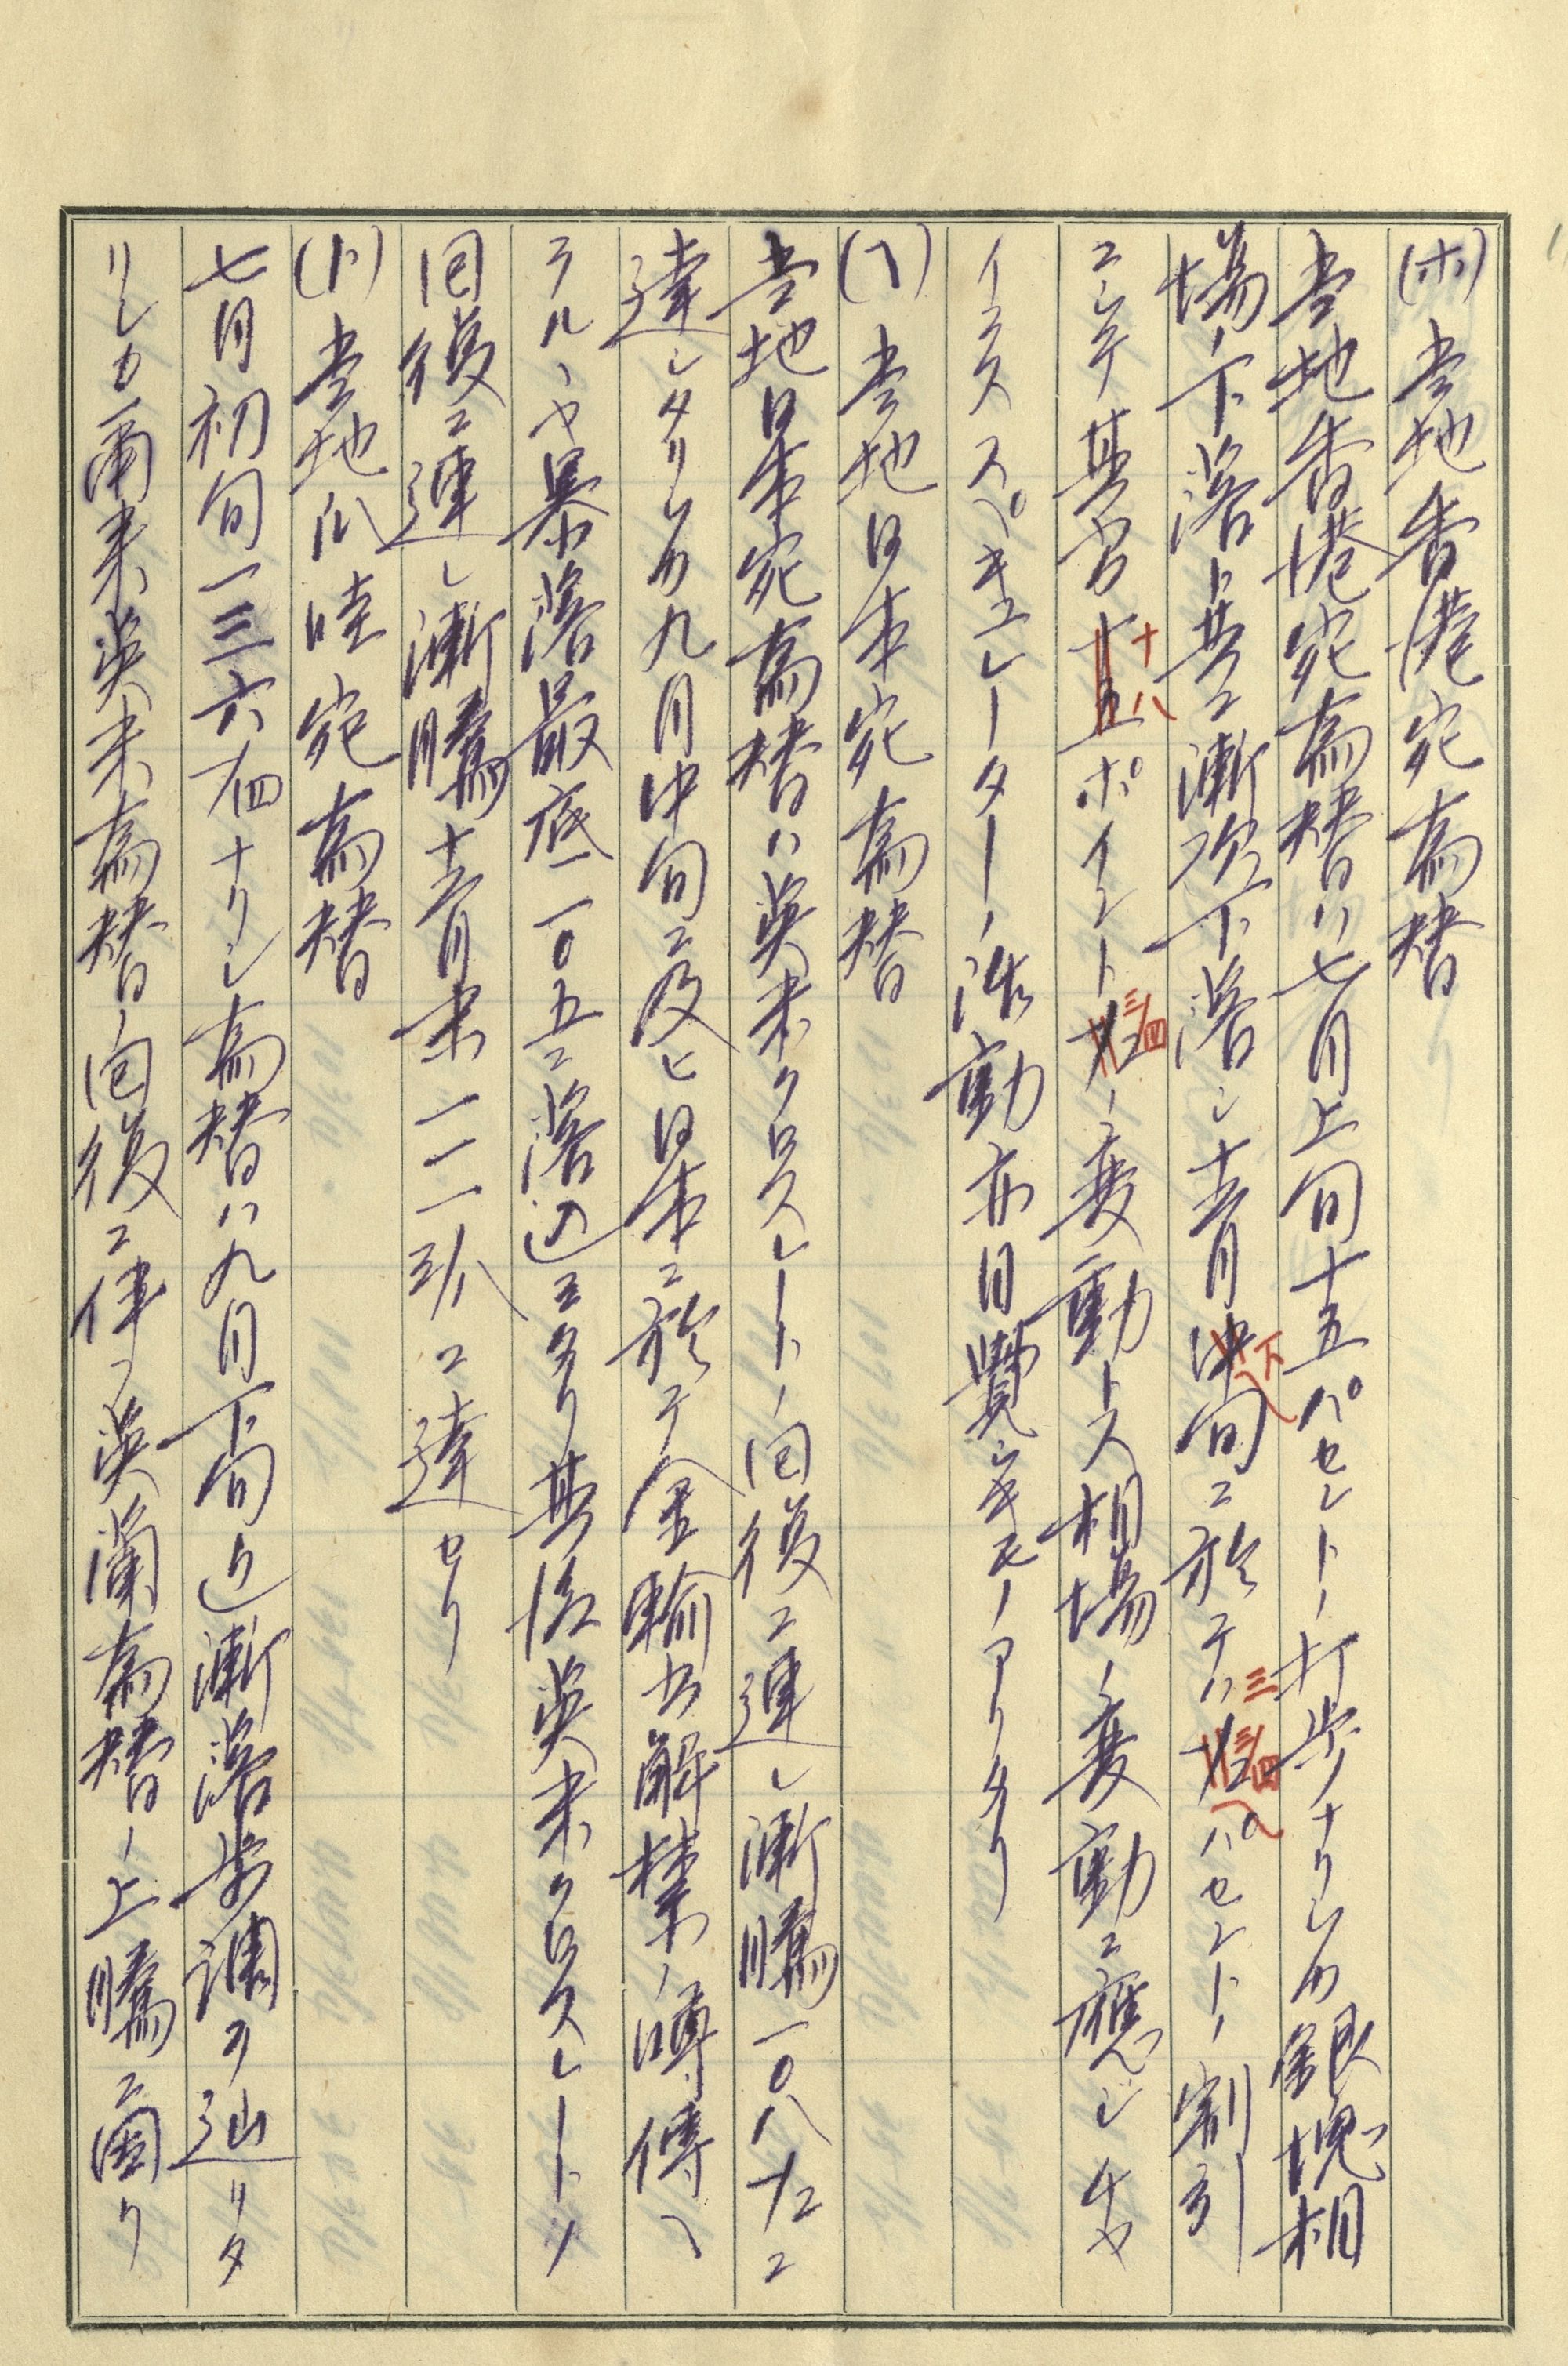 (ホ) 当地香港宛為替
当地香港宛為替ハ七月上旬十五パセントノ打歩ナリシカ銀塊相
場ノ下落ト共ニ漸次下落シ十二月下旬ニ於テハ三 三/四パセントノ割引
ニシテ其差十八ポイント三/四ノ変動トス相場ノ変動ニ應ジチヤ
イネススペキュレーターノ活動亦目覺シキモノアリタリ
(ヘ) 当地日本宛為替
当地日本宛為替ハ英米クロスレートノ回復ニ連レ漸騰一〇八 1/2ニ
達シタリシカ九月中旬ニ及ヒ日本ニ於テ金輸出解禁ノ噂傳ヘ
ラルヽヤ暴落最底一〇五ニ落込ミタリ其后英米クロスレートノ
回復ニ連レ漸騰十二月末一一一 3/8ニ達セリ
(ト) 当地爪哇宛為替
七月初旬一三六 1/4ナリシ為替ハ九月下旬迄漸落歩調ヲ辿リタ
リシカ爾来英米為替ノ回復ニ伴フ英蘭為替ノ上騰ニ因リ